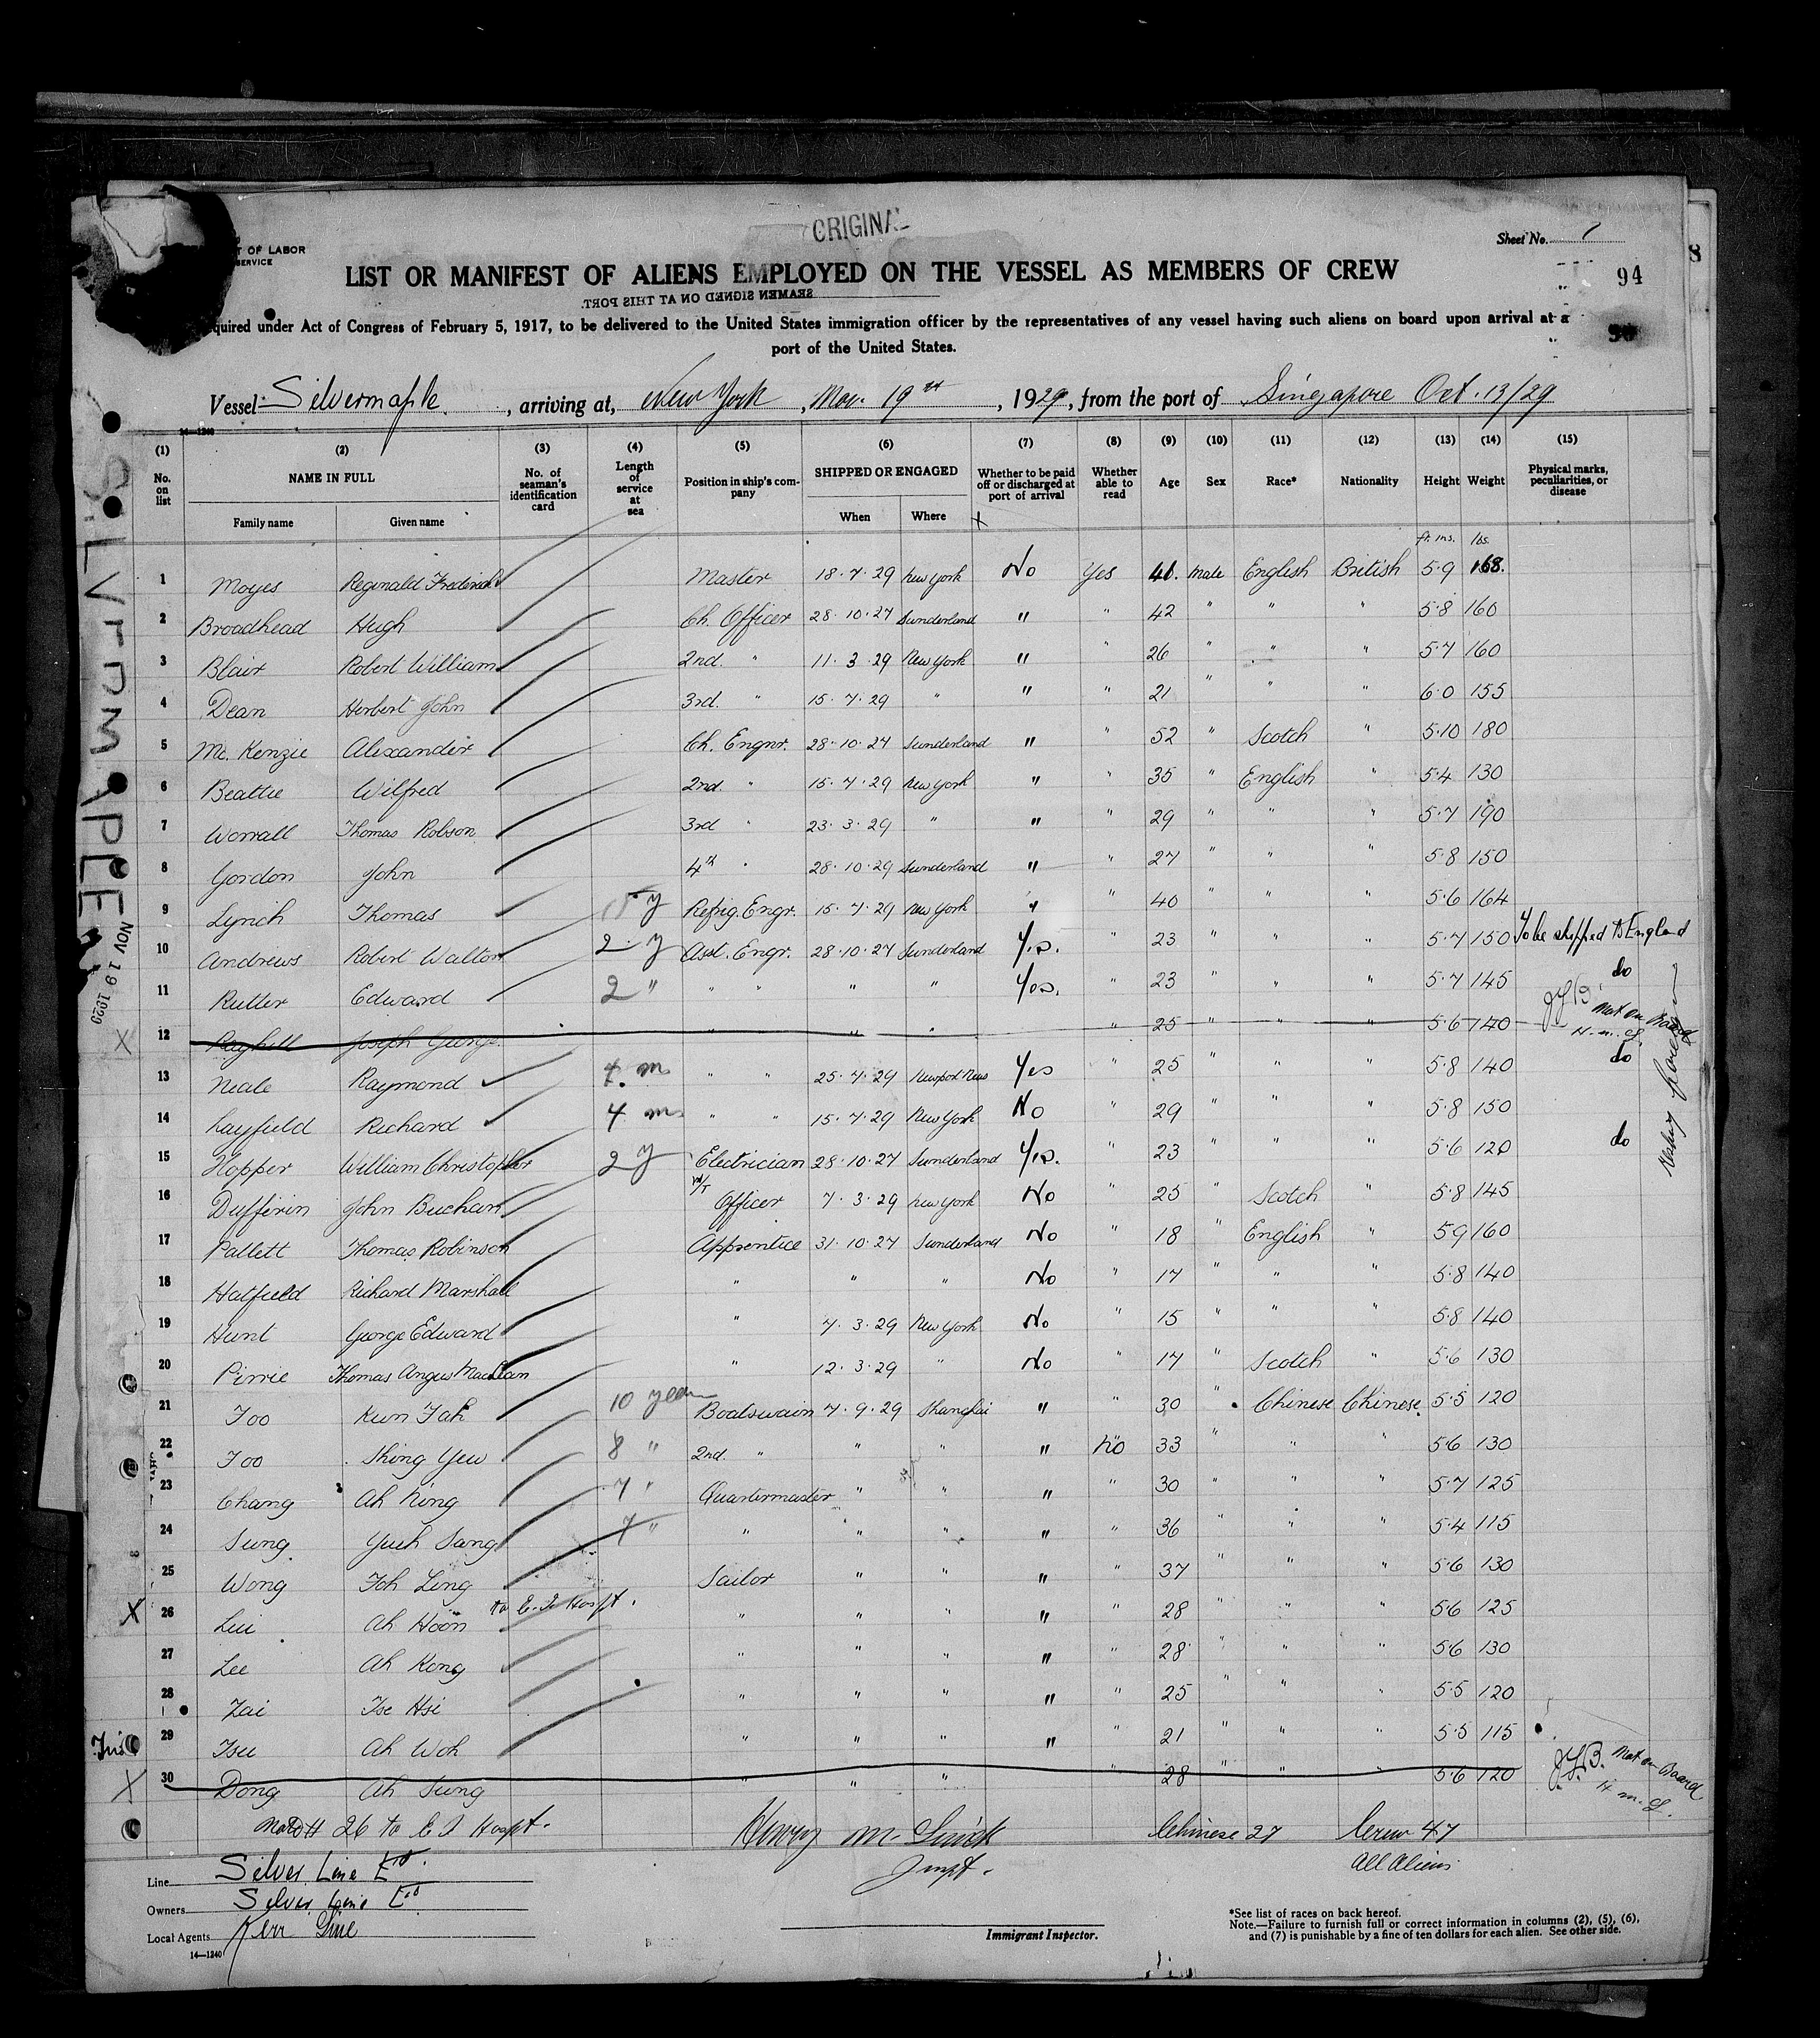 ORIGINAL
T OF LABOR
SERVICE
Sheet No. 1
LIST OR MANIFEST OF ALIENS EMPLOYED ON THE VESSEL AS MEMBERS OF CREW
94
SEAMEN SIGNED ON AT THIS PORT.
quired under Act of Congress of February 5, 1917, to be delivered to the United States immigration officer by the representatives of any vessel having such aliens on board upon arrival at a
port of the United States.
Vessel Silvermaple, arriving at, New York, Nov. 19th, 1929, from the port of Singapore Oct. 13/29
14—1240
(1) (2) (3) (4) (5) (6) (7) (8) (9) (10) (11) (12) (13) (14) (15)
No. on list NAME IN FULL No. of seaman's identification card Length of service at sea Position in ship's company SHIPPED OR ENGAGED Whether to be paid off or discharged at port of arrival Whether able to read Age Sex Race* Nationality Height Weight Physical marks, peculiarities, or disease
Family name Given name When Where
ft. ins. lbs.
1 Moyes Reginald Frederick Master 18.7.29 New York No Yes 41. Male English British 5.9 168.
2 Broadhead Hugh Ch. Officer 28.10.27 Sunderland " " 42 " " " 5.8 160
3 Blair Robert William 2nd. " 11.3.29 New York " " 26 " " " 5.7 160
4 Dean Herbert John 3rd. " 15.7.29 " " " 21 " " " 6.0 155
5 Mc. Kenzie Alexander Ch. Engnr. 28.10.27 Sunderland " " 52 " Scotch " 5.10 180
6 Beattie Wilfred 2nd. " 15.7.29 New York " " 35 " English " 5.4 130
7 Worrall Thomas Robson 3rd " 23.3.29 " " " 29 " " " 5.7 190
8 Gordon John 4th " 28.10.29 Sunderland " " 27 " " " 5.8 150
9 Lynch Thomas 15 y Refrig. Engr. 15.7.29 New York " " 40 " " " 5.6 164
10 Andrews Robert Walton 2 y Asst. Engr. 28.10.27 Sunderland Yes. " 23 " " " 5.7 150 To be shipped to England
11 Rutter Edward 2 " " " " " Yes. " 23 " " " 5.7 145 do
12 Rayhill Joseph George " " " " 25 " " " 5.6 140 JFB. Not on Board H. M. L.
13 Neale Raymond 4. m " " 25.7.29 Newport News Yes " 25 " " " 5.8 140 do
14 Layfield Richard 4 m " " 15.7.29 New York No " 29 " " " 5.8 150
15 Hopper William Christopher 2 y Electrician 28.10.27 Sunderland Yes. " 23 " " " 5.6 120 do
16 Dufferin John Buchan W/T Officer 7.3.29 New York No " 25 " Scotch " 5.8 145
17 Pallett Thomas Robinson Apprentice 31.10.27 Sunderland No " 18 " English " 5.9 160
18 Hatfield Richard Marshall " " " No " 17 " " " 5.8 140
19 Hunt George Edward " 7.3.29 New York No " 15 " " " 5.8 140
20 Pirrie Thomas Angus MacLean " 12.3.29 " No " 17 " Scotch " 5.6 130
21 Foo Kun Fah 10 years Boatswain 7.9.29 Shanghai " " 30 " Chinese Chinese 5.5 120
22 Foo Shing Yew 8 " 2nd. " " " " No 33 " " " 5.6 130
23 Chang Ah Ning 7 " Quartermaster " " " " 30 " " " 5.7 125
24 Sung Yueh Sang 7 " " " " " " 36 " " " 5.4 115
25 Wong Foh Ling Sailor " " " " 37 " " " 5.6 130
X 26 Lui Ah Hoon to E. I. Hospt. " " " " " 28 " " " 5.6 125
27 Lee Ah Kong " " " " " 28 " " " 5.6 130
28 Zai Tse Hsi " " " " " 25 " " " 5.5 120
29 Tsu Ah Woh " " " " " 21 " " " 5.5 115
X 30 Dong Ah Sung " " " " 28 " " " 5.6 120 JFB. Not on Board H. M. L.
26 to E I Hospt. Chinese 27 Crew 47
Inspt. All Aliens
Line Silver Line Ltd.
Owners Silver Line Ltd
Local Agents Kerr Line
Immigrant Inspector.
14—1240
*See list of races on back hereof.
Note.—Failure to furnish full or correct information in columns (2), (5), (6),
and (7) is punishable by a fine of ten dollars for each alien. See other side.
SILVERMAPLE
NOV 19 1929